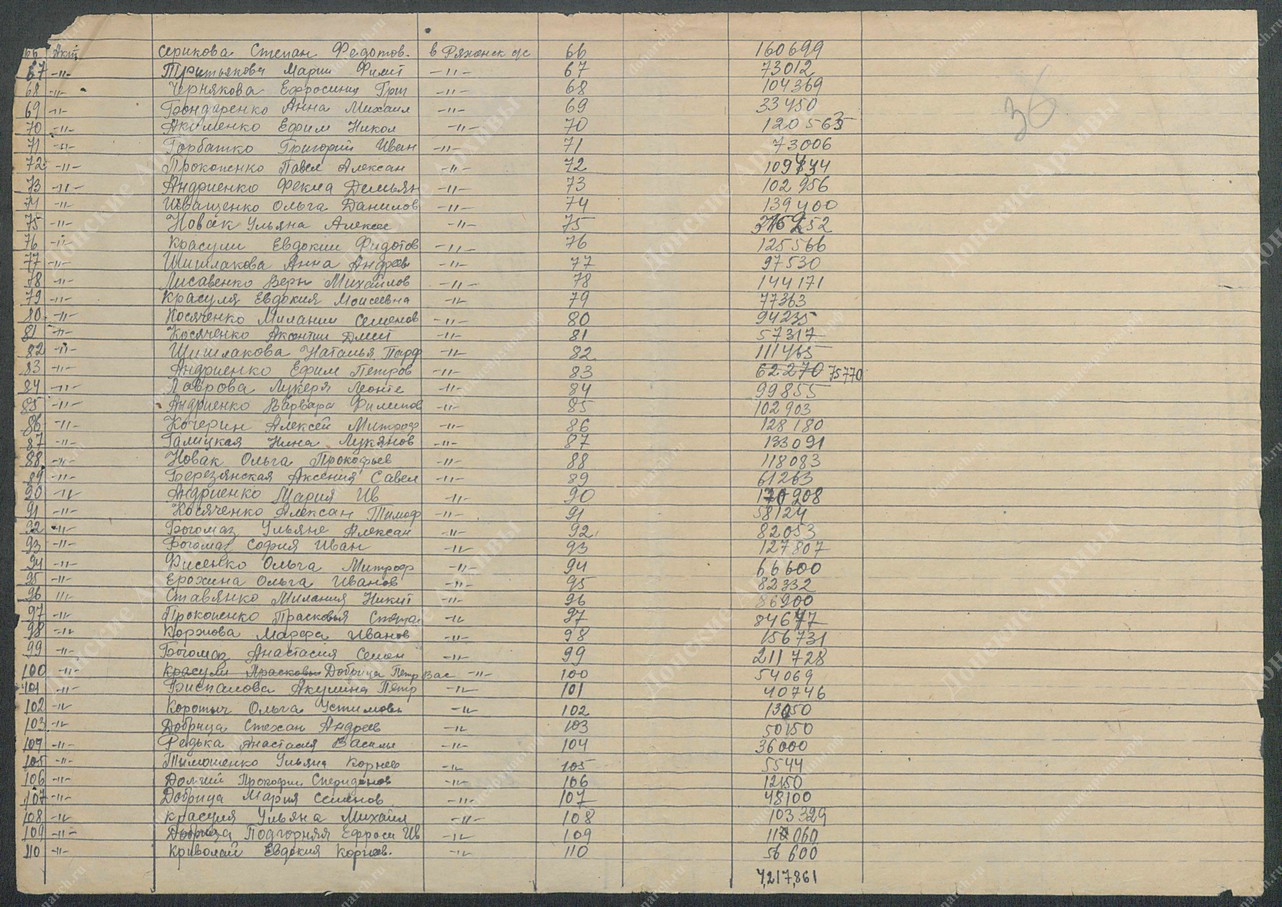 66 Акт Серикова Степан Федотов. в Ряженск с/с 66 160699
67 -"- Третьякови Мария Филип -"- 67 73012
68 -"- Чернякова Ефросиния Григ 68 104369
69 -"- Бондаренко Анна Михаил -"- 69 33450
70 -"- Акименко Ефим Никол -"- 70 120563
71 -"- Горбатко Григорий Иван -"- 71 73006
72 -"- Прокопенко Павел Алексан -"- 72
73 -"- Андриенко Фекла Демьян -"- 73 102956
74 -"- Иващенко Ольга Данилов -"- 74 139400
75 -"- Новак Ульяна Алексе -"- 75
76 -"- Красули Евдокии Федотов -"- 76 125566
77 -"- Шишлакова Анна Андрев -"- 77 97530
78 -"- Лисавенко Веры Михайлов -"- 78 144171
79 -"- Красуля Евдокия Моисеевна -"- 79 77363
80 -"- Косяченко Милании Семенов -"- 80 94235
81 -"- Косяченко Аксентии Дмит -"- 81 57317
82 -"- Шишлакова Наталья Парф -"- 82 111465
83 -"- Андриенко Ефим Петров -"- 83 62270 75770
84 -"- Лаврова Лукеря Леонте -"- 84 99855
85 -"- Андриенко Варвара Филипов -"- 85 102903
86 -"- Кочерин Алексей Митроф -"- 86 128180
87 -"- Галицкая Нина Лукянов -"- 87 133091
88 -"- Новак Ольга Прокофьев -"- 88 118083
89 -"- Березянская Аксения Савел -"- 89 61263
90 -"- Андриенко Мария Ив -"- 90 908
91 -"- Косяченко Алексан Тимоф -"- 91 58124
92 -"- Богомаз Ульяне Алексан -"- 92 82053
93 -"- Богомаз София Иван -"- 93 127807
94 -"- Фисенко Ольга Митроф -"- 94 66600
95 -"- Ерохина Ольга Иванов -"- 95 82332
96 -"- Ставянко Милания Никит -"- 96 86900
97 -"- Прокопенко Прасковья Степа -"- 97
98 -"- Коржова Марфа Иванов -"- 98 156731
99 -"- Богомаз Анастасия Семен -"- 99 211728
100 -"- Красули Прасковьи Добрица Петр Вас -"- 100 54069
101 -"- Беспалова Акулина Петр -"- 101 40746
102 -"- Коротыч Ольга Устимовн -"- 102 13050
103 -"- Добрица Степан Андреев -"- 103 50150
104 -"- Редька Анастасия Василь -"- 104 36000
105 -"- Тимошенко Ульяна Корнев -"- 105 5544
106 -"- Долгий Прокофи Спиридонов -"- 106 12150
107 -"- Добрица Мария Семенов -"- 107 48100
108 -"- Красуля Ульяна Михаил -"- 108 103329
109 -"- Добрица Подгорняя Ефроси Ив -"- 109
110 -"- Криволай Евдокия Корнев. -"- 110 56600
4,217,861
36